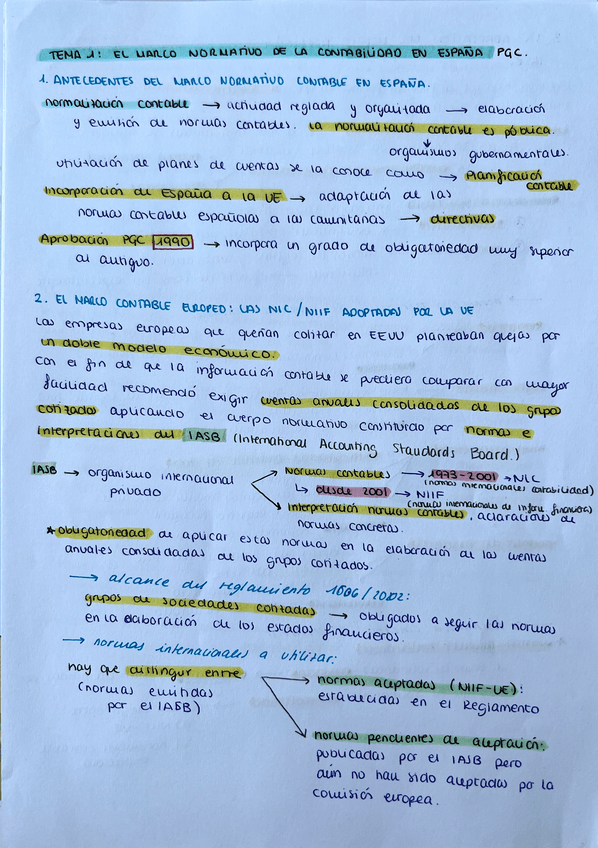 TEMA 1: EL MARCO NORMATIVO DE LA CONTABILIDAD EN ESPAÑA PGC.
1. ANTECEDENTES DEL MARCO NORMATIVO CONTABLE EN ESPAÑA.
normalización contable → actividad reglada y organizada → elaboración
y emisión de normas contables. La normalización contable es pública.
↓
organismos gubernamentales.
utilización de planes de cuentas se la conoce como → Planificación
contable
Incorporación de España a la UE → adaptación de las
normas contables españolas a las comunitarias → directivas
Aprobación PGC 1990 → incorpora un grado de obligatoriedad muy superior
al antiguo.
2. EL MARCO CONTABLE EUROPEO: LAS NIC / NIIF ADOPTADAS POR LA UE
Las empresas europeas que querían cotizar en EEUU planteaban quejas por
un doble modelo económico.
Con el fin de que la información contable se pudiera comparar con mayor
facilidad recomendó exigir cuentas anuales consolidadas de los grupos
cotizados aplicando el cuerpo normativo constituido por normas e
interpretaciones del IASB (International Accounting Standards Board.)
IASB → organismo internacional
privado
Normas contables → 1973-2001 → NIC
(normas internacionales contabilidad)
↳ desde 2001 → NIIF
(normas internacionales de inform. financiera)
Interpretación normas contables, aclaraciones de
normas concretas.
★ obligatoriedad de aplicar estas normas en la elaboración de las cuentas
anuales consolidadas de los grupos cotizados.
→ alcance del reglamento 1606/2002:
grupos de sociedades cotizadas → obligados a seguir las normas
en la elaboración de los estados financieros.
→ normas internacionales a utilizar:
hay que distinguir entre
(normas emitidas
por el IASB)
→ normas aceptadas (NIIF-UE):
establecidas en el Reglamento
→ normas pendientes de aceptación:
publicadas por el IASB pero
aún no han sido aceptadas por la
comisión europea.